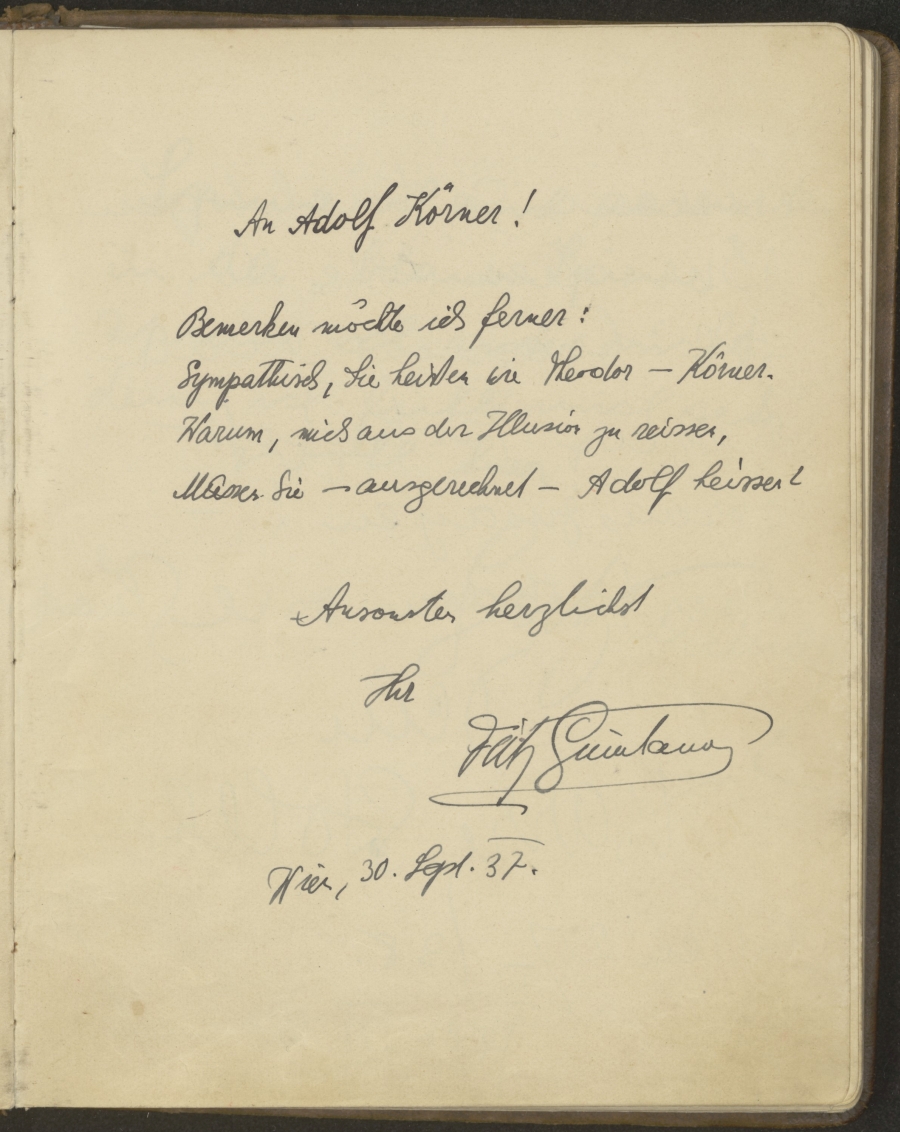 An Adolf Körner!
Bemerken möchte ich ferner:
Sympathisch, Sie heißen wie Theodor – Körner.
Warum, mich aus der Illusion zu reissen,
Müssen Sie – ausgerechnet – Adolf heissen?
Ansonsten herzlichst
Ihr
Fritz Grünbaum
Wien, 30. Sept. 37.